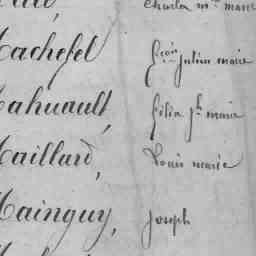 Charles m^ie marie
Machefel fçois Julien marie
Mahuault, félix Jh marie
Maillard, Louis marie
Mainguy, Joseph